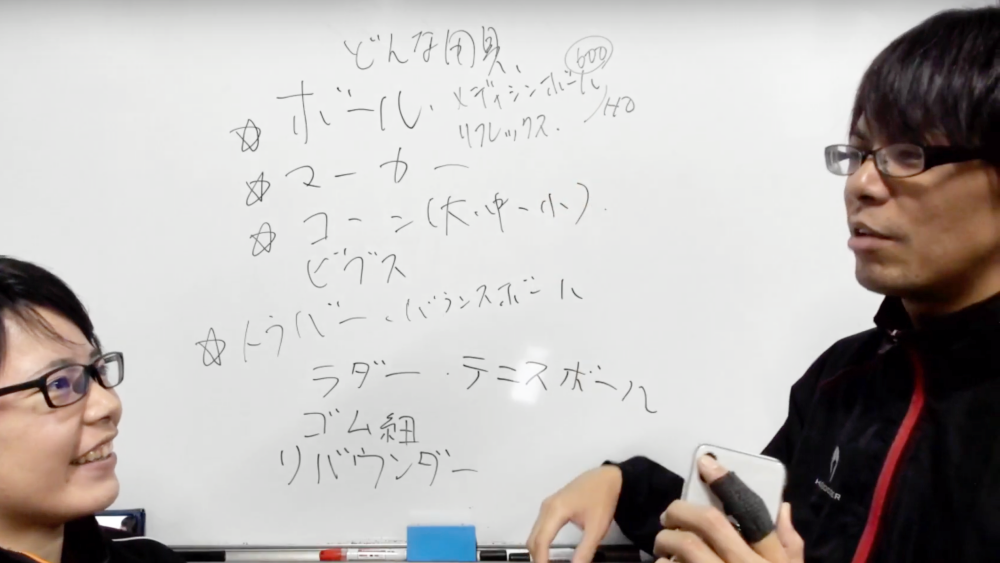 どんな用具
600
☆ ボール・メディシンボール
リフレックス.
☆ マーカー
☆ コーン(大・中・小)
ビブス
☆ トラバー・バランスボール
ラダー・テニスボール
ゴム紐
リバウンダー